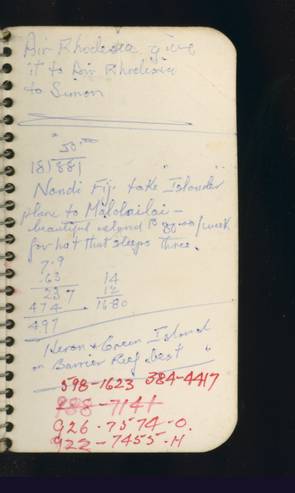 Air Rhodesia give
it to Air Rhodesia
to Simon
50.00
18/881
Nandi Fiji take Islander
plane to Malolailai –
beautiful island
for hut that sleeps three.
7.9
.63
14
237
12
474
1680
497
Heron & Green Island
on Barrier Reef best
598-1623 384-4417
988-7141
926-7574-O.
922-7455-H